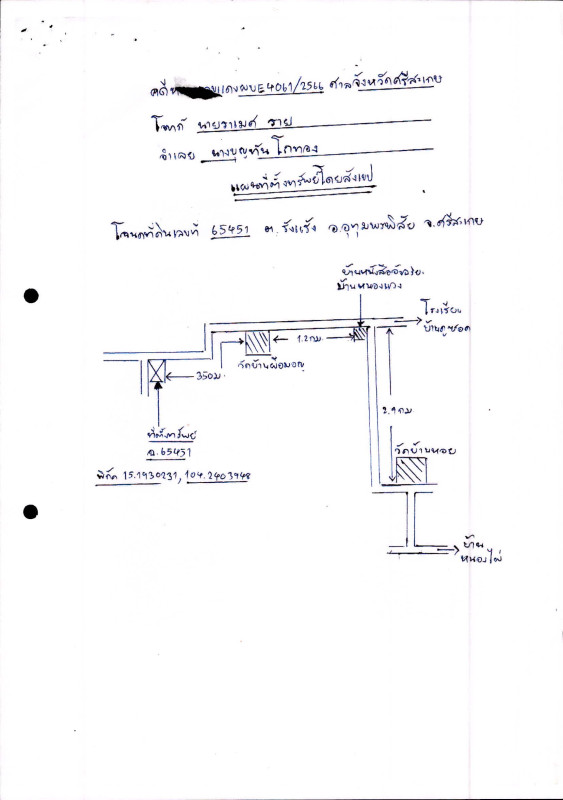 คดีห แดงผบE4061/2566 ศาลจังหวัดศรีสะเกษ
โจทก์ นายราเมศ ราย
จำเลย นางบุญทัน โกทอง
แผนที่ตั้งทรัพย์โดยสังเขป
โฉนดที่ดินเลขที่ 65451 ต.รังแร้ง อ.อุทุมพรพิสัย จ.ศรีสะเกษ
บ้านหนองแวง
โรงเรียน
1.2 กม.
วัดบ้านผือ
350 ม.
2.9 กม
ที่ตั้งทรัพย์
ฉ.65451
วัดบ้านหอย
พิกัด 15.1930231, 104.2403948
บ้าน
หนองไผ่